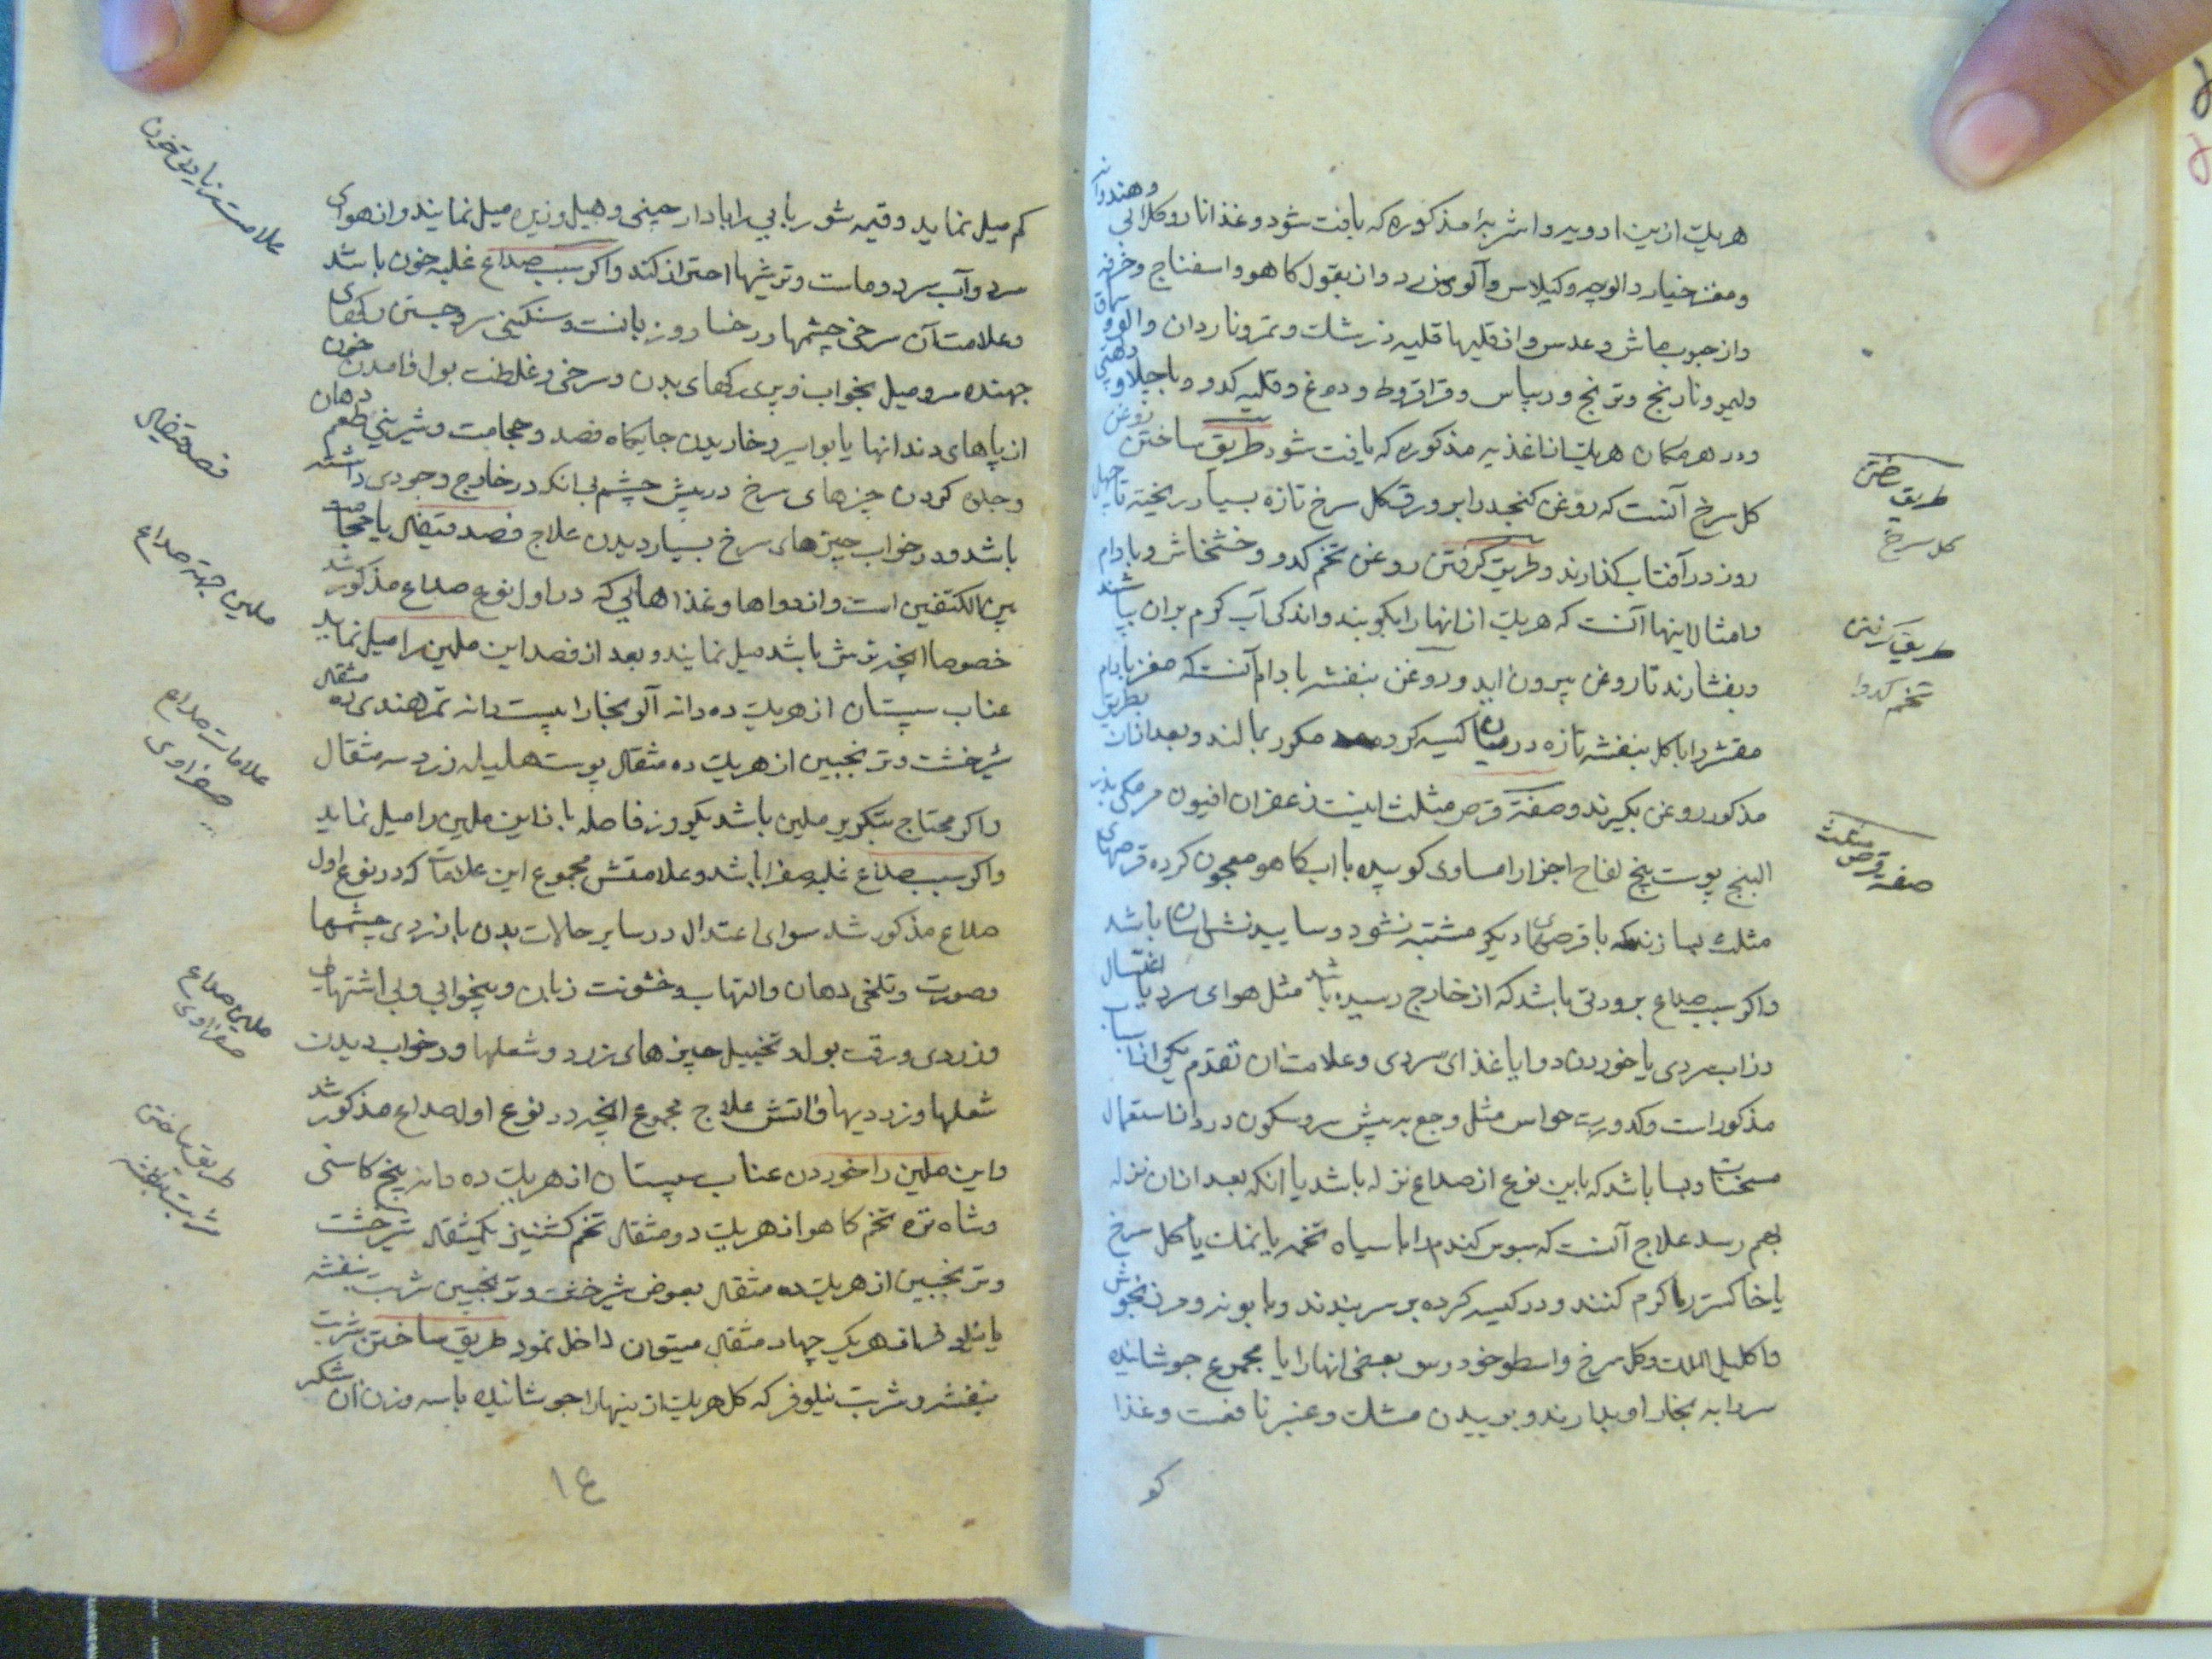 هریک ازین ادویه و اشربهٔ مذکوره که یافت شود و غذا انار و گلابی وهندوانه
و مغز خیار و الوچه و کیلاس و آلوی زرد و از بقول کاهو و اسفناج و خرفه
و از حبوب ماش و عدس و از قلیها قلیه زرشک و تمر و ناردان و آلو و سماق
و لیمو و نارنج و ترنج و ریباس و قراقروط و دوغ و قلیه کدو و با چلاو
و در هر مکان هریک از اغذیه مذکوره که یافت شود طریق ساختن روغن
کل سرخ آنست که روغن کنجد را بر ورق کل سرخ تازه بسیار ریخته تا چهل
روز در آفتاب کذارند و طریق کرفتن روغن تخم کدو و خشخاش و بادام
و امثال اینها آنست که هریک از انها را بکوبند و اندکی آب کرم بران بپاشند
و بفشارند تا روغن بیرون اید و روغن بنفشه بادام آنست که مغز بادام
مقشر را با کل بنفشه تازه در میان کیسه کرده مکرر بمالند و بعد ازان بطریق
مذکور روغن بکیرند و صفة قرص مثلث اینست زعفران افیون مر مکی بذر
البنج پوست بیخ لفاح اجزا را مساوی کوبیده با اب کاهو معجون کرده قرصهای
مثلث بسازند که با قرصهای دیکر مشتبه نشود و ساییدنش اسان باشد
و اکر سبب صداع برودتی باشد که از خارج رسیده باشد مثل هوای سرد یا اغتسال
در اب سردی یا خوردن دوا یا غذای سردی و علامت ان تقدم یکی از اسباب
مذکور است و کدورت حواس مثل وجع به پیش سر و سکون درد از استعمال
مسخنات و بسا باشد که باین نوع از صداع نزله باشد یا انکه بعد ازان نزله
بهم رسد علاج آنست که سبوس کندم را با سیاه تخمه یا نمک یا کل سرخ
یا خاکستر را کرم کنند و در کیسه کرده بر سر بندند و بابونه و مرزنجوش
و اکلیل الملک و کل سرخ و اسطوخودوس بعضی انها را یا مجموع جوشانیده
سر را به بخار او بدارند و بوییدن مشک و عنبر نافعست و غذا
کو
طریق ساختن
کل سرخ
طریق کرفتن
تخم کدو
صفة قرص مثلث
کم میل نماید و قیمه شوربایی را با دارچینی و هیل و زیره میل نمایند و از هوای
سرد و آب سرد و ماست و ترشیها احتراز کند و اکر سبب صداع غلبه خون باشد
و علامت آن سرخی چشمها و رخسار و زبانست و سنکینی سر و جستن رکهای
جهنده سر و میل بخواب و پری رکهای بدن و سرخی و غلظت بول و امدن خون
از پاهای دندانها یا بواسیر و خاریدن جایکاه فصد و حجامت و شیرینی طعم دهان
و جلوه کردن چیزهای سرخ در پیش چشم بی انکه در خارج وجودی داشته
باشد و در خواب چیزهای سرخ بسیار دیدن علاج فصد قیفال یا حجامت
بین الکتفین است و از دواها و غذاهایی که در اول نوع صداع مذکور شد
خصوصا انچه ترش باشد میل نمایند و بعد از فصد این ملین را میل نماید
عناب سپستان از هریک ده دانه آلو بخارا بیست دانه تمر هندی ده مثقال
شیرخشت و ترنجبین از هریک ده مثقال پوست هلیله زرد سه مثقال
و اکر محتاج بتکریر ملین باشد یکروز فاصله باز این ملین را میل نماید
و اکر سبب صداع غلبه صفرا باشد و علامتش مجموع این علامات که در نوع اول
صداع مذکور شد سوای اعتدال در سایر حالات بدن با زردی چشمها
و صورت و تلخی دهان و التهاب و خشونت زبان و بیخوابی و بی اشتهایی
و زردی و رقت بول و تخییل چیزهای زرد و شعلها و در خواب دیدن
شعلها و زردیها و اتش علاج مجموع انچه در نوع اول صداع مذکور شد
و این ملین را خوردن عناب سپستان از هریک ده دانه بیخ کاسنی
و شاه تره تخم کاهو از هریک دو مثقال تخم کشنیز یکمثقال شیرخشت
و ترنجبین از هریک ده مثقال بعوض شیرخشت و ترنجبین شربت بنفشه
یا نیلوفر از هریک چهار مثقال میتوان داخل نمود طریق ساختن شربت
بنفشه و شربت نیلوفر که کل هریک از اینها را جوشانیده با سه وزن ان شکر
علامت زیادتی خون
فصد قیفال
ملین جهة صداع
علامات صداع
صفراوی
ملین صداع
صفراوی
طریق ساختن
شربت بنفشه